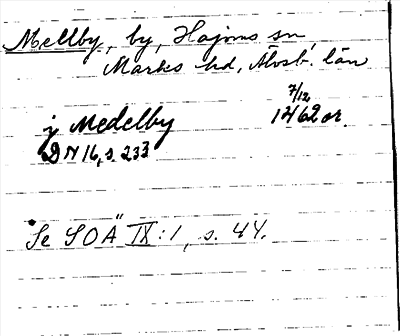 Mellby, by, Hajoms sn
Marks hd, Älvsb. län
7/12
j Medelby 1462 or.
DN 16, s. 233
Se SOÄ IX:1, s. 44.